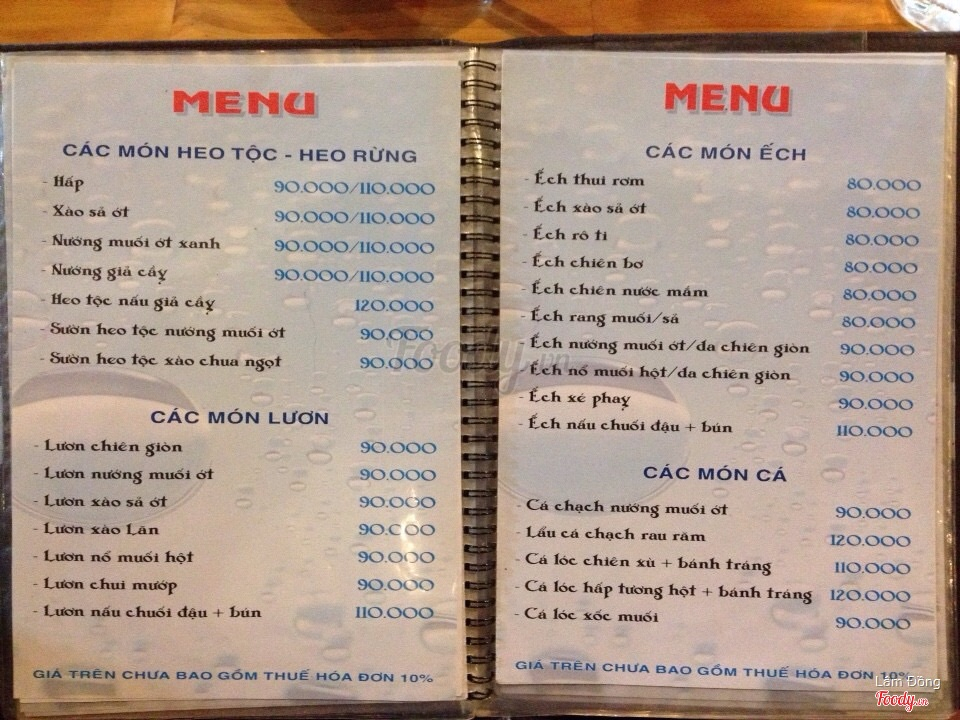 MENU
CÁC MÓN HEO TỘC - HEO RỪNG
- Hấp 90.000/110.000
- Xào sả ớt 90.000/110.000
- Nướng muối ớt xanh 90.000/110.000
- Nướng giả cầy 90.000/110.000
- Heo tộc nấu giả cầy 120.000
- Sườn heo tộc nướng muối ớt 90.000
- Sườn heo tộc xào chua ngọt 90.000
CÁC MÓN LƯƠN
- Lươn chiên giòn 90.000
- Lươn nướng muối ớt 90.000
- Lươn xào sả ớt 90.000
- Lươn xào Lăn 90.000
- Lươn nổ muối hột 90.000
- Lươn chui mướp 90.000
- Lươn nấu chuối đậu + bún 110.000
GIÁ TRÊN CHƯA BAO GỒM THUẾ HÓA ĐƠN 10%
MENU
CÁC MÓN ẾCH
- Ếch thui rơm 80.000
- Ếch xào sả ớt 80.000
- Ếch rô ti 80.000
- Ếch chiên bơ 80.000
- Ếch chiên nước mắm 80.000
- Ếch rang muối/sả 80.000
- Ếch nướng muối ớt/da chiên giòn 90.000
- Ếch nổ muối hột/da chiên giòn 90.000
- Ếch xé phay 90.000
- Ếch nấu chuối đậu + bún 110.000
CÁC MÓN CÁ
- Cá chạch nướng muối ớt 90.000
- Lẩu cá chạch rau răm 120.000
- Cá lóc chiên xù + bánh tráng 110.000
- Cá lóc hấp tương hột + bánh tráng 120.000
- Cá lóc xốc muối 90.000
GIÁ TRÊN CHƯA BAO GỒM THUẾ HÓA ĐƠN 10%
Foody.vn
Lâm Đồng
Foody.vn